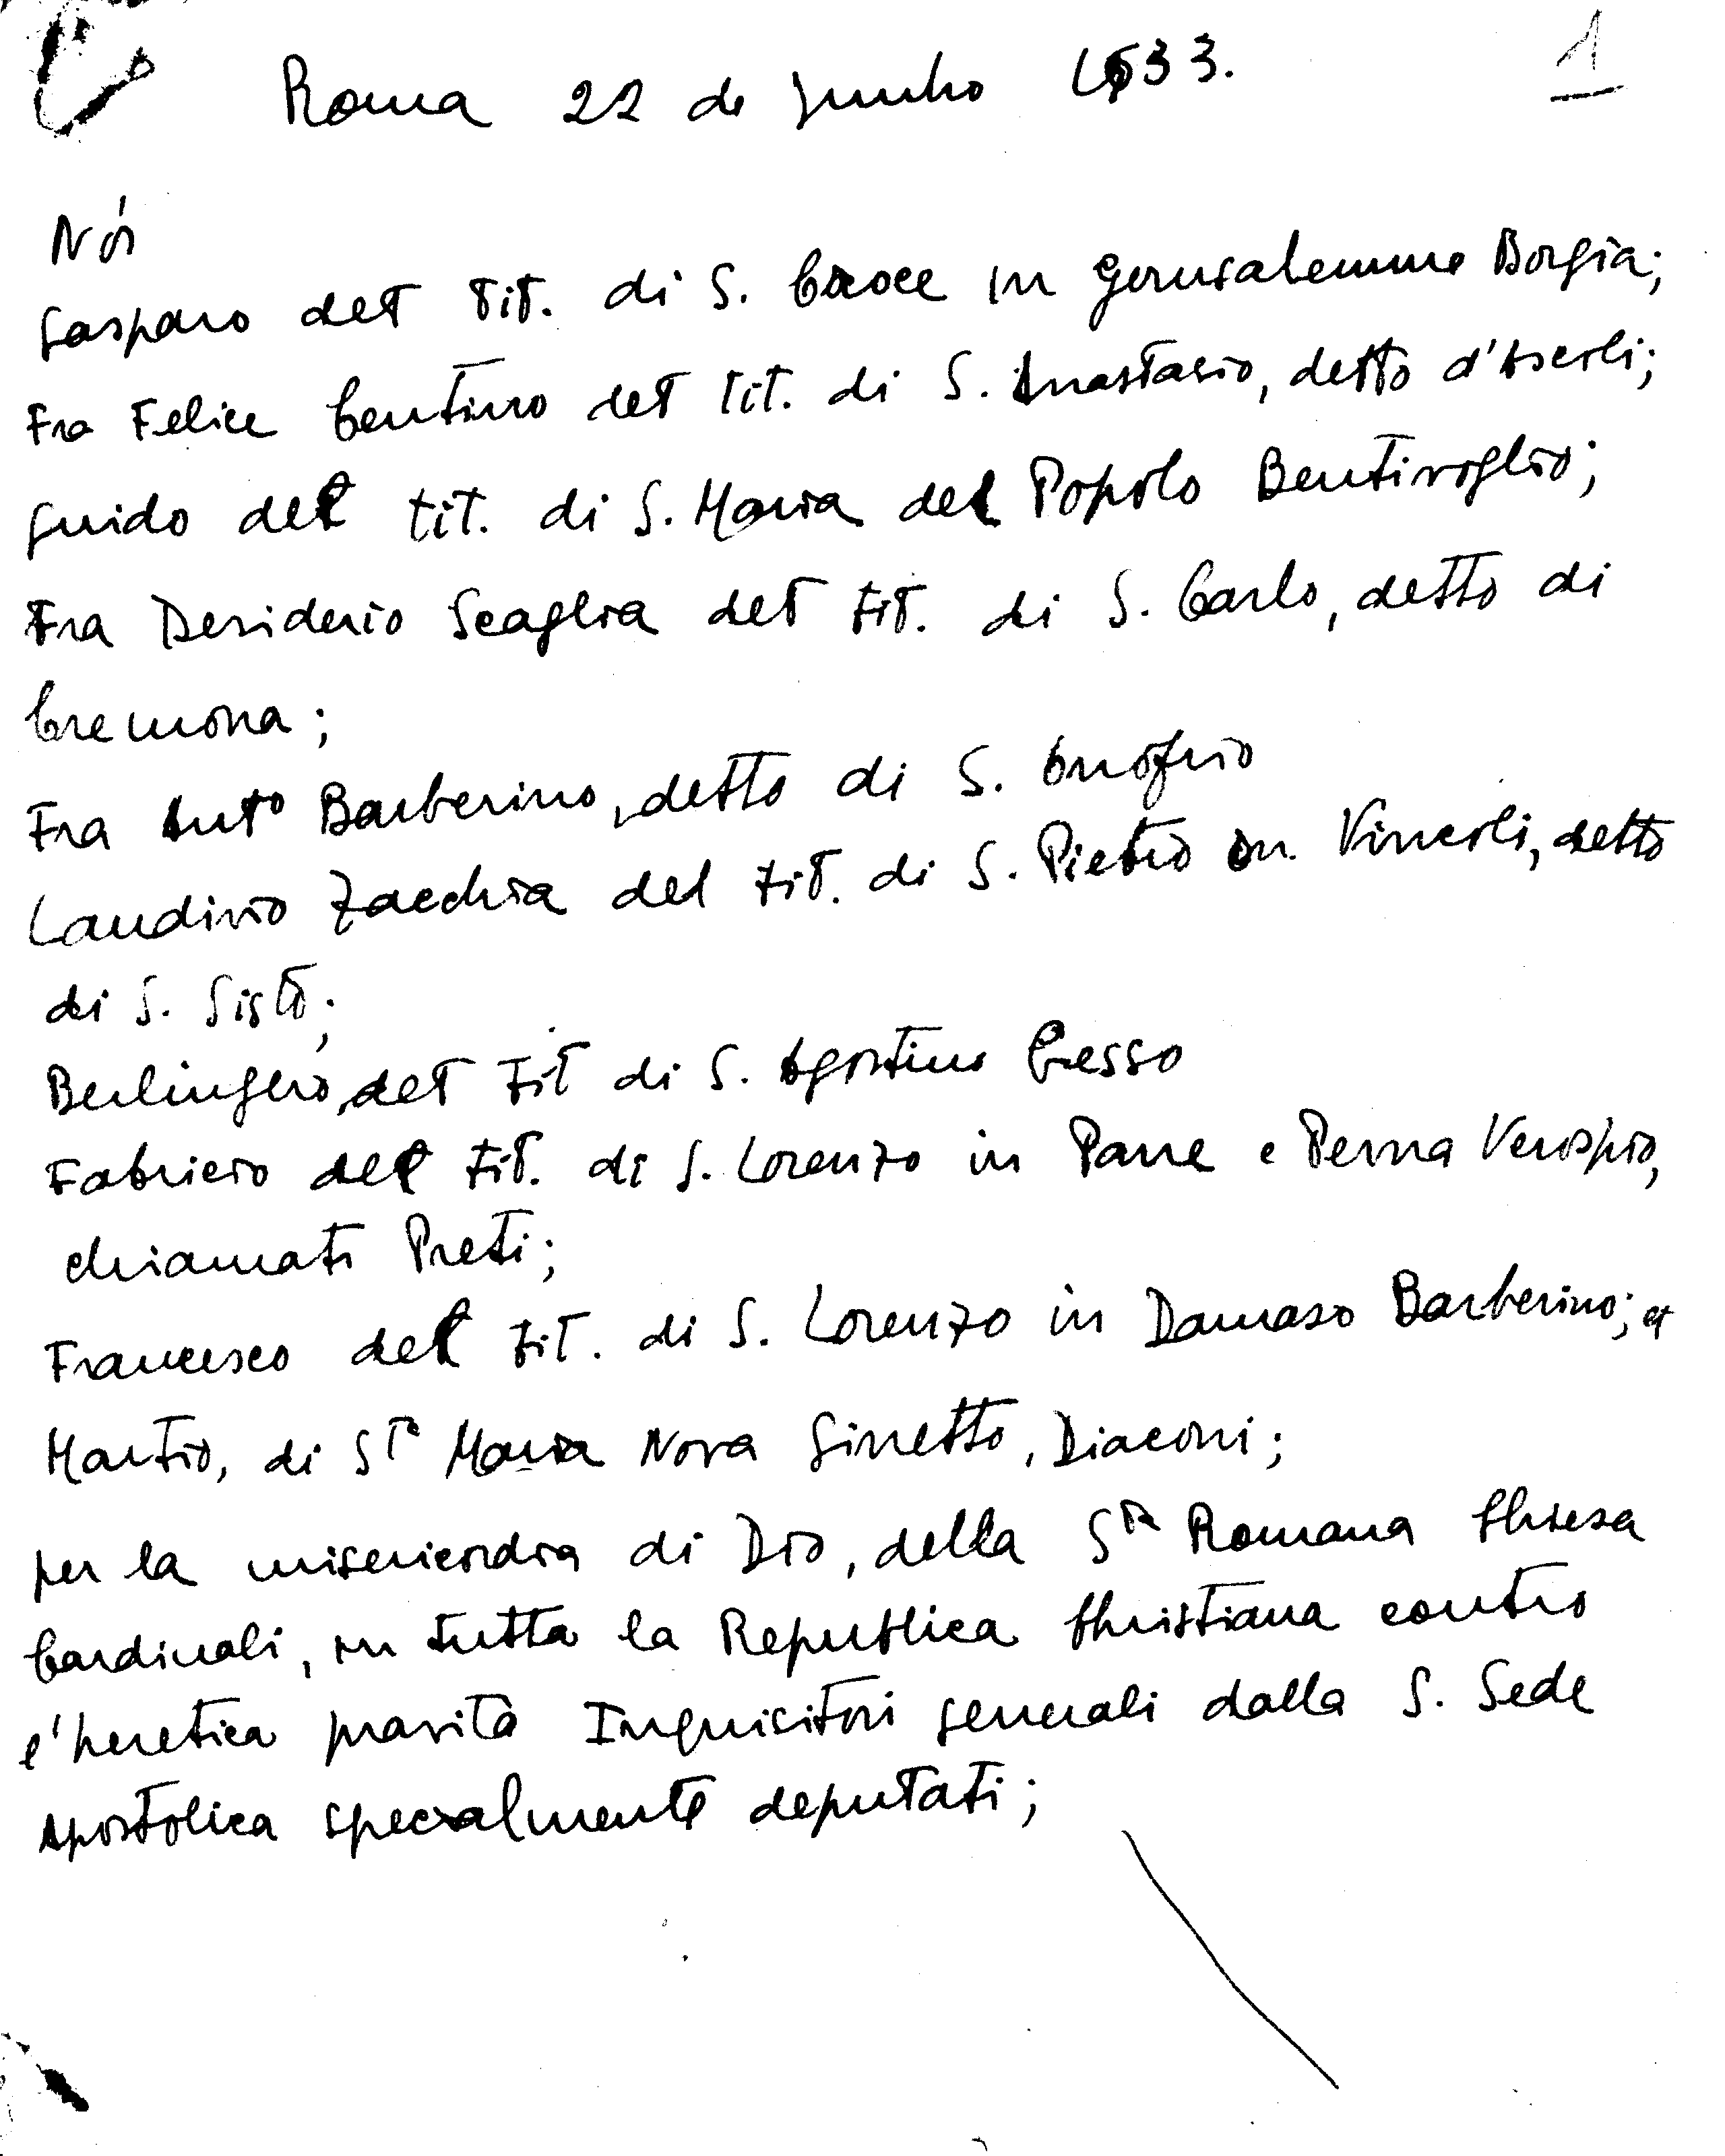 1
Roma 22 de Junho 1633.
Nós
Gasparo del tit. di S. Croce in Gerusalemme Borgia;
Fra Felice Centino del tit. di S. Anastasio, detto d'Ascoli;
Guido del tit. di S. Maria del Popolo Bentivoglio;
Fra Desiderio Scaglia del tit. di S. Carlo, detto di
Cremona;
Fra Antº Barberino, detto di S. Onofrio
Laudivio Zacchia del tit. di S. Pietro in Vincoli, detto
di S. Sisto;
Berlingero, del tit di S. Agostino Gesso
Fabricio del tit. di S. Lorenzo in Pane e Perna Verospio,
chiamati Preti;
Francesco del tit. di S. Lorenzo in Damaso Barberino; et
Martio, di Sta Maria Nova Ginetto, Diaconi;
per la misericordia di Dio, della Sta Romana Chiesa
Cardinali, in tutta la Republica Christiana contro
l'heretica pravità Inquisitori generali dalla S. Sede
Apostolica specialmente deputati;